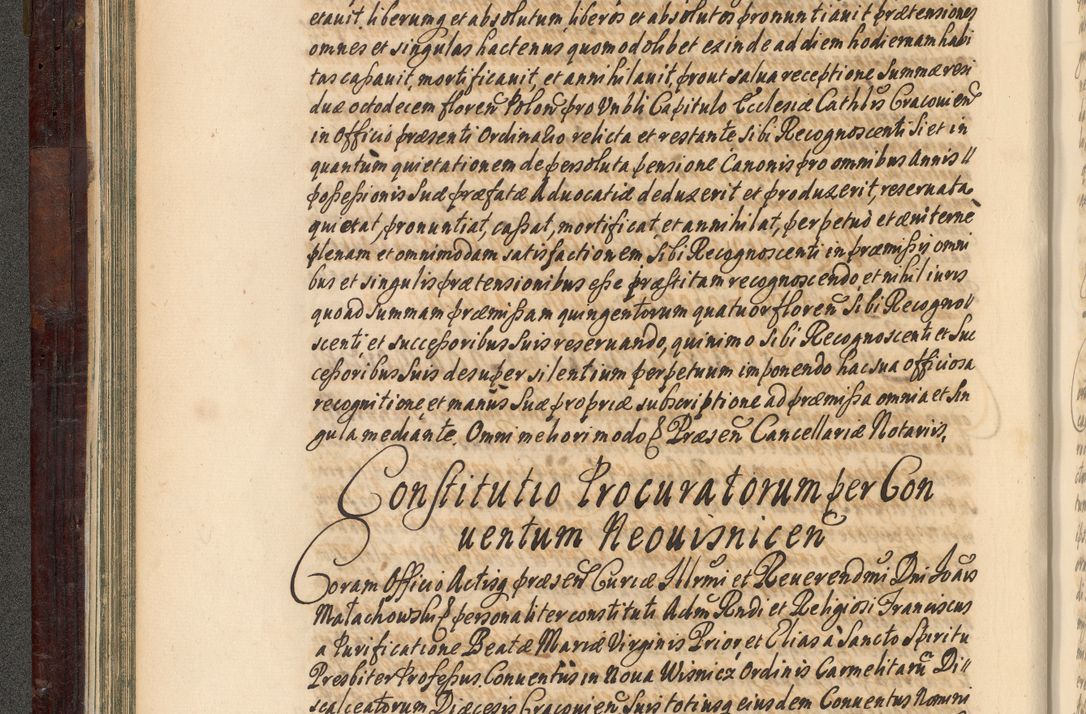 etauit liberumq et absolutum liberos et absolutos pronuntiauit prætensiones
omnes et singulas hactenus quomodolibet exinde ad diem hodiernam habi
tas cassauit, mortificauit, et annihilauit, prout salua receptione Summæ resi
duæ octodecem floren̄ Polon̄ pro Vnbli Capitulo Ecclesiæ Cathlis Cracouien̄
in Officio præsenti Ordinario relicta et restante Sibi Recognoscenti Si et in
quantum quietationem de persoluta pensione Canonis pro omnibus Annis //
possessionis Suæ præfatæ Aduocatiæ deduxerit et produxerit, reseruata
quietat, pronuntiat, cassat, mortificat et annihilat, perpetuò et æuiternè
plenam et omnimodam satisfactionem Sibi Recognoscenti in præmissis omni
bus et singulis prætensionibus esse præstitam recognoscendo et nihil iuris
quoad Summam præmissam quingentorum quatuor floren̄ Sibi Recogno//
scenti et successoribus Suis reseruando, quinimo Sibi Recognoscenti et Suc
cessoribus Suis desuper silentium perpetuum imponendo hac sua officiosa
recognitione, et manus Suæ propriæ subscriptione ad præmissa omnia et Sin
gula mediante. Omni meliori modo Præsen̄ Cancellariæ Notariis,
Constitutio Procuratorum per Con
uentum Neouisnicen̄
Coram Officio Actisq præsen̄ Curiæ Illrmi et Reuerendmi Dni Joanis
Małachowski personaliter constituti Adm Rndi et Religiosi Franciscus
a Purificatione Beatæ Mariæ Virginis Prior et Elias à Sancto Spiritu
Presbiter Professus. Conuentus in Noua Wisnicz Ordinis Carmelitarū Di//
scalceatorum Diæcesis Cracouien̄ Suis totiusq eiusdem Conuentus Nomini